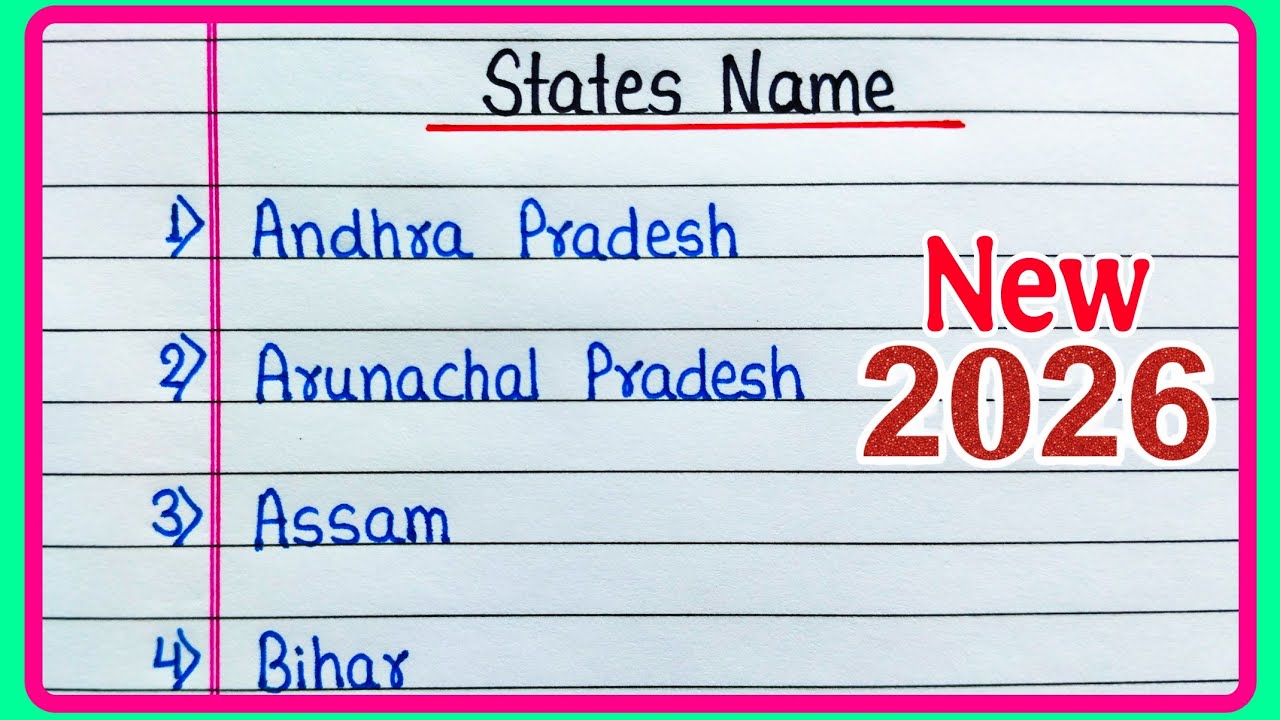 States Name
1) Andhra Pradesh
New
2) Arunachal Pradesh
2026
3) Assam
4) Bihar